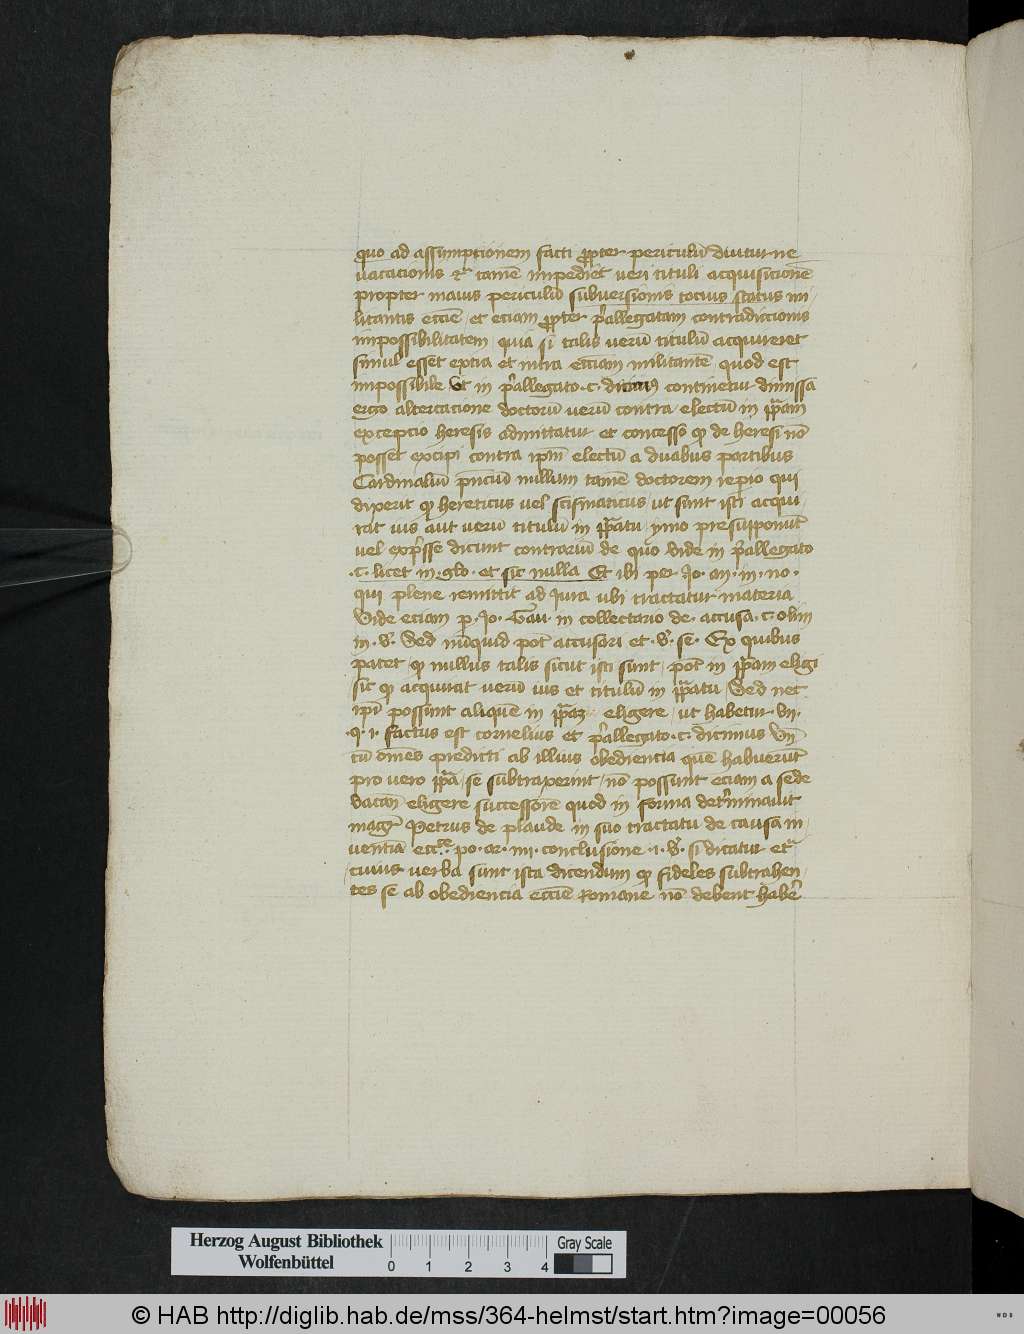 quo ad assumptionem facti propter periculū diutur ne
vacacionis &c tamē impediet veri tituli acquisicionē
propter maius periculū subuersionis tocius status mi
litantis eccīe et eciam propter p̄allegatam contradictionis
impossibilitatem quia si talis verū titulū acquireret
simul esset extra et intra eccīam militantē quod est
impossibile vt in p̄allegato .c. dicimus continetur dimissa
ergo altercacione doctorū verū contra electū in pp̄am
excepcio heresis admittatur et concesso qd de heresi nō
posset excipi contra ip̄m electū a duabus partibus
Cardinaliū nullum tamē doctorem rep̄io qui
dixerit qd hereticus vel scismaticus vt sunt isti acqui
rat ius aut verū titulū in pp̄atu ymo presupponūt
vel exp̄sse dicunt contrariū de quo vide in p̄allegato
.c. licet in glo. et sic nulla Et ibi per Jo. an. in. no.
qui plene remittit ad Jura vbi tractatur materia
Vide eciam p. Jo. Cau. in collectario de. accusa. c. olim
in .v. Sed nūquid pot̄ accusari et .v. se. Ex quibus
patet qd nullus talis sicut isti sunt pot̄ in pp̄am eligi
sic qd acquirat verū ius et titulū in pp̄atu Sed nec
ipī possunt aliquē in pp̄am eligere vt habetur .vii.
.q. i. factus est cornelius et p̄allegato .c. dicimus Vn̄
cū om̄es predicti ab illius obediencia quē habuerūt
pro vero pp̄a se subtraxerint nō possunt eciam a sede
vacan̄ eligere successorē quod in forma det̄minauit
magr̄ Petrus de plaude in suo tractatu de causa in
ventia eccīe. po. ar. iiii. conclusione .i. v. si dicatur etc̄
cuius verba sunt ista dicendum qd fideles subtrahen
tes se ab obediencia eccīe Romane nō debent habēr
Herzog August Bibliothek
Wolfenbüttel
0 1 2 3 4
Gray Scale
© HAB http://diglib.hab.de/mss/364-helmst/start.htm?image=00056